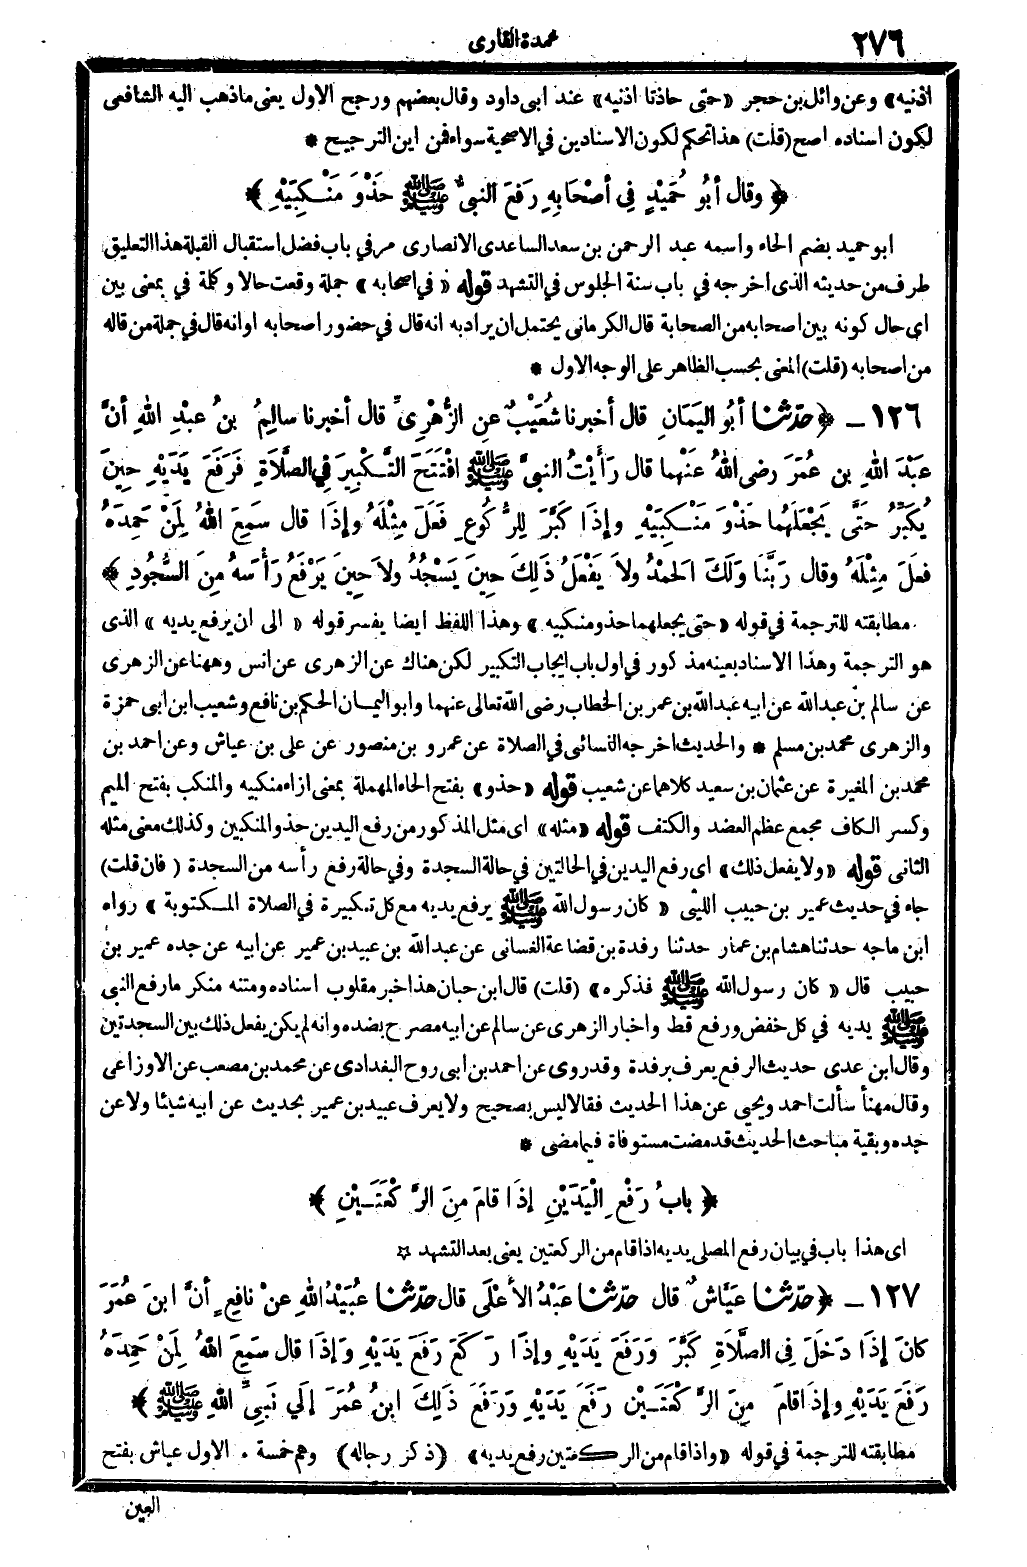 ٢٧٦
عمدة القارى
اذنيه» وعن وائل بن حجر «حتى حاذتا اذنيه» عند ابى داود وقال بعضهم ورجح الاول يعنى ماذهب اليه الشافعى
لكون اسناده اصح (قلت) هذا تحكم لكون الاسنادين في الاصحية سواء فمن اين الترجيح *
﴿ وقال أبُو حُمَيْدٍ فِي أصْحَابِهِ رَفَعَ النبيُّ ﷺ حَذْوَ مَنْكِبَيْهِ ﴾
ابو حميد بضم الحاء واسمه عبد الرحمن بن سعد الساعدى الانصارى مر في باب فضل استقبال القبلة هذا التعليق
طرف من حديثه الذى اخرجه في باب سنة الجلوس في التشهد قوله «فى اصحابه» جملة وقعت حالا وكلمة في بمعنى بين
اى حال كونه بين اصحابه من الصحابة قال الكرمانى يحتمل ان يراد به انه قال في حضور اصحابه او انه قال في جملة من قاله
من اصحابه (قلت) المعنى بحسب الظاهر على الوجه الاول *
١٢٦ ـ ﴿ حدّثنا أبُو اليَمَانِ قال أخبرنا شُعَيْبٌ عنِ الزُّهْرِىِّ قال أخبرنا سالِمُ بنُ عبْدِ اللهِ أنَّ
عَبْدَ اللهِ بن عُمَرَ رضى اللهُ عَنْهما قال رَأَيْتُ النبيَّ ﷺ افْتَتَحَ التَّكْبِيرَ فِي الصَّلاَةِ فَرَفَعَ يَدَيْهِ حِينَ
يُكَبِّرُ حَتَّى يَجْعَلَهُما حَذْوَ مَنْكِبَيْهِ وإذَا كَبَّرَ لِلرُّكُوعِ فَعَلَ مِثْلَهُ وإذَا قال سَمِعَ اللهُ لِمَنْ حَمِدَهُ
فعلَ مِثْلَهُ وقال رَبَّنَا ولَكَ الحَمْدُ ولاَ يَفْعَلُ ذَلِكَ حِينَ يَسْجُدُ ولاَ حِينَ يَرْفَعُ رَأْسَهُ مِنَ السُّجُودِ ﴾
مطابقته للترجمة في قوله «حتى يجعلهما حذو منكبيه» وهذا اللفظ ايضا يفسر قوله «الى ان يرفع يديه» الذى
هو الترجمة وهذا الاسناد بعينه مذكور في اول باب ايجاب التكبير لكن هناك عن الزهرى عن انس وههنا عن الزهرى
عن سالم بن عبدالله عن ابيه عبدالله بن عمر بن الخطاب رضى الله تعالى عنهما وابو اليمان الحكم بن نافع وشعيب ابن ابى حمزة
والزهرى محمد بن مسلم * والحديث اخرجه النسائى في الصلاة عن عمرو بن منصور عن على بن عياش وعن احمد بن
محمد بن المغيرة عن عثمان بن سعيد كلاهما عن شعيب قوله «حذو» بفتح الحاء المهملة بمعنى ازاء منكبيه والمنكب بفتح الميم
وكسر الكاف مجمع عظم العضد والكتف قوله «مثله» اى مثل المذكور من رفع اليدين حذو المنكبين وكذلك معنى مثله
الثانى قوله «ولا يفعل ذلك» اى رفع اليدين في الحالتين في حالة السجدة وفي حالة رفع رأسه من السجدة (فان قلت)
جاء في حديث عمير بن حبيب الليثى «كان رسول الله ﷺ يرفع يديه مع كل تكبيرة في الصلاة المكتوبة» رواه
ابن ماجه حدثنا هشام بن عمار حدثنا رفدة بن قضاعة الغسانى عن عبد الله بن عبيد بن عمير عن ابيه عن جده عمير بن
حبيب قال «كان رسول الله ﷺ فذكره» (قلت) قال ابن حبان هذا خبر مقلوب اسناده ومتنه منكر ما رفع النبي
ﷺ يديه في كل خفض ورفع قط واخبار الزهرى عن سالم عن ابيه مصرح بضده وانه لم يكن يفعل ذلك بين السجدتين
وقال ابن عدى حديث الرفع يعرف برفدة وقد روى عن احمد بن ابى روح البغدادى عن محمد بن مصعب عن الاوزاعى
وقال مهنأ سألت احمد ويحيى عن هذا الحديث فقالا ليس بصحيح ولا يعرف عبيد بن عمير بحديث عن ابيه شيئا ولا عن
جده وبقية مباحث الحديث قد مضت مستوفاة فيما مضى *
﴿ بابُ رَفْعِ اليَدَيْنِ إذَا قامَ مِنَ الرَّكْعَتَيْنِ ﴾
اى هذا باب في بيان رفع المصلى يديه اذا قام من الركعتين يعنى بعد التشهد ☆
١٢٧ ـ ﴿ حدّثنا عَيَّاشٌ قال حدّثنا عَبْدُ الأعْلَى قال حدّثنا عُبَيْدُ اللهِ عنْ نافِعٍ أنَّ ابنَ عُمَرَ
كانَ إذَا دَخَلَ فِى الصَّلاَةِ كَبَّرَ وَرَفَعَ يَدَيْهِ وإذَا رَكَعَ رَفَعَ يَدَيْهِ وَإذَا قال سَمِعَ اللهُ لِمَنْ حَمِدَهُ
رَفَعَ يَدَيْهِ وإذَا قامَ مِنَ الرَّكْعَتَيْنِ رَفَعَ يَدَيْهِ وَرَفَعَ ذَلِكَ ابنُ عُمَرَ إلَي نَبيِّ اللهِ ﷺ ﴾
مطابقته للترجمة في قوله «واذا قام من الركعتين رفع يديه» (ذكر رجاله) وهم خمسة . الاول عياش بفتح
العين